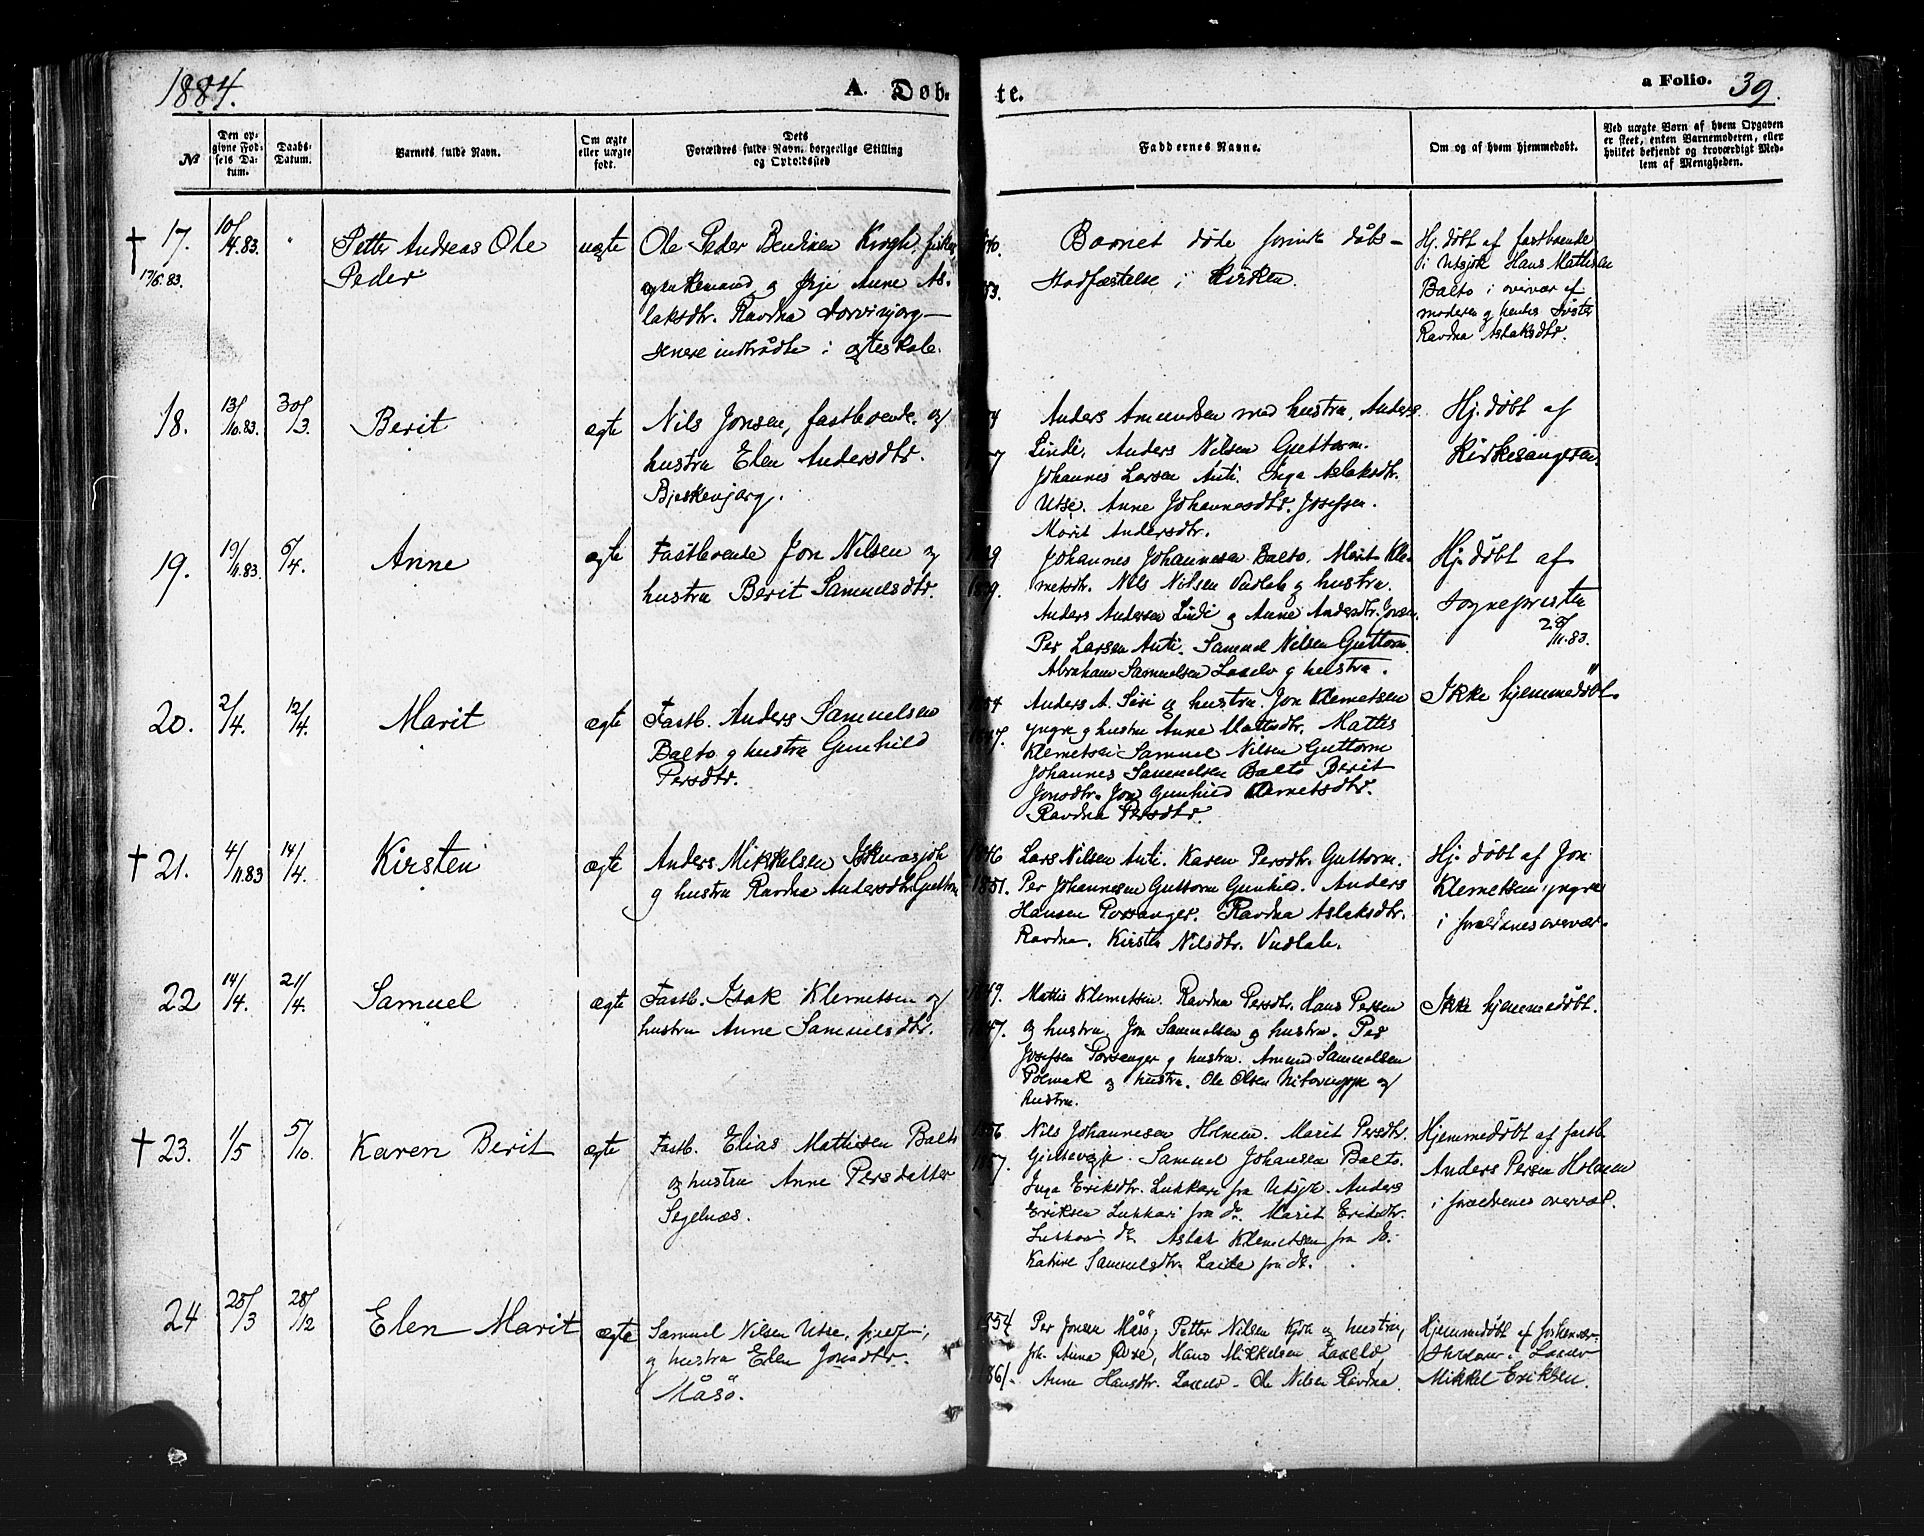 1884.
A. Døbte.
a Folio. 39.
№
Den opgivne Fødsels Datum.
Daabs-Datum.
Barnets fulde Navn.
Om ægte eller uægte født.
Dets Forældres fulde Navn, borgerlige Stilling og Opholdssted
Faddernes Navne.
Om og af hvem hjemmedøbt.
Ved uægte Børn af hvem Opgaven er skeet, enten Barnemoderen, eller hvilket bekjendt og troværdigt Medlem af Menigheden.
† 17.
17/6.83.
10/4.83.
"
Petter Andreas Ole
Peder
uægte
Ole Peder Bendixen Krogh, fisker,
enkemand og Anne As-
laksdtr. Ravdna Dorvinjarg
senere indtrådte i ægteskab.
Barnet døde forinden dåbs-
Stadfæstelse i Kirken.
Hj. døbt af fastboende
i Utsjok Hans Mathisen
Balto i overvær af
moderen og hendes Søster
Ravdna Aslaksdtr.
18.
13/10.83.
30/3.
Berit
ægte
Nils Jonsen, fastboende og
hustru Elen Andersdtr.
Bjeskenjarg.
Anders Amundsen med hustru, Anders
Lindi, Anders Nilsen Guttorm.
Johannis Larsen Anti. Inga Aslaksdtr.
Utse. Anne Johannesdtr. Josefsen.
Marit Andersdtr.
Hj. døbt af
Kirkesangeren.
19.
19/11.83.
6/4.
Anne
ægte
Fastboende Jon Nilsen og
hustru Berit Samuelsdtr.
Johannes Johannesen Balto. Marit Kle-
metsdtr. Nils Nilsen Vudlab og hustru.
Anders Andersen Lindi og Anne Andersdtr. Jonsen.
Per Larsen Anti. Samuel Nilsen Guttorm.
Abraham Samuelsen Laxelv og hustru.
Hj. døbt af
Sognepresten
28/11.83.
20.
2/4.
12/4.
Marit
ægte
Fastb. Anders Samuelsen
Balto og hustru Gunhild
Persdtr.
Anders A. Siri og hustru. Jon Klemetsen
yngre og hustru Anne Mattisdtr. Mattis
Klemetsen Samuel Nilsen Guttorm
Johannes Samuelsen Balto Berit
Jonsdtr. Jon Gunhild Klemetsdtr.
Ravdna Persdtr.
Ikke hjemmedøbt.
† 21.
4/11.83
14/4.
Kirsten
ægte
Anders Mikkelsen
og hustru Ravdna Andersdtr. Guttorm
1846
1851.
Lars Nilsen Anti. Karen Persdtr. Guttorm.
Per Johannesen Guttorm Gunhild. Anders
Hansen Porsanger. Ravdna Aslaksdtr.
Ravdna. Kirsten Nilsdtr. Vudlab.
Hj. døbt af Jon
Klemetsen yngre
i forældrenes overvær.
22
14/4.
21/4.
Samuel
ægte
Fastb. Isak Klemetsen og
hustru Anne Samuelsdtr.
Mattis Klemetsen. Ravdna Persdtr. Hans Persen
og hustru. Jon Samuelsen og hustru. Per
Josefsen Porsanger og hustru. Amund Samuelsen
Polmak og hustru. Ole Olsen og
hustru.
Ikke hjemmedøbt.
† 23.
1/5
5/10.
Karen Berit
ægte
Fastb. Elias Mathisen Balto
og hustru Anne Persdatter
Segelnæs.
Nils Johannesen Holmen. Marit Persdtr.
Samuel Johansen Balto.
Inga Eriksdtr. Lukkari fra Utsjok. Anders
Eriksen Lukkari fra do. Marit Eriksdtr.
Lukkari do. Aslak Klemetsen fra do.
Katrine Samuelsdtr. Laiti fra do.
Hjemmedøbt af fastb.
Anders Persen Holmen
i forældrenes overvær.
24
25/3
28/12
Elen Marit
ægte
Samuel Nilsen Utse,
og hustru Elen Jonsdtr.
Måsø.
Per Jonsen Måsø, Petter Nilsen og hustru,
Joh. Anna Hans Mikkelsen Laxelv,
Anne Hansdtr. Laxelv - Ole Nilsen Ravdna.
Hjemmedøbt af
i Laxelv
Mikkel Eriksen.